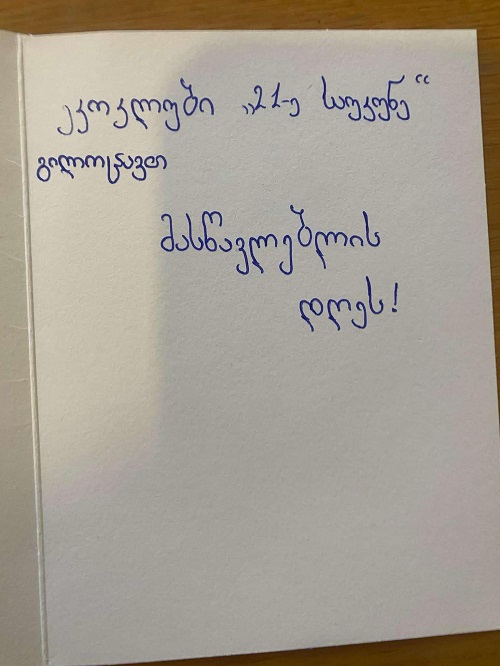 ეკოკლუბი „21-ე საუკუნე“
გილოცავთ
მასწავლებლის
დღეს!